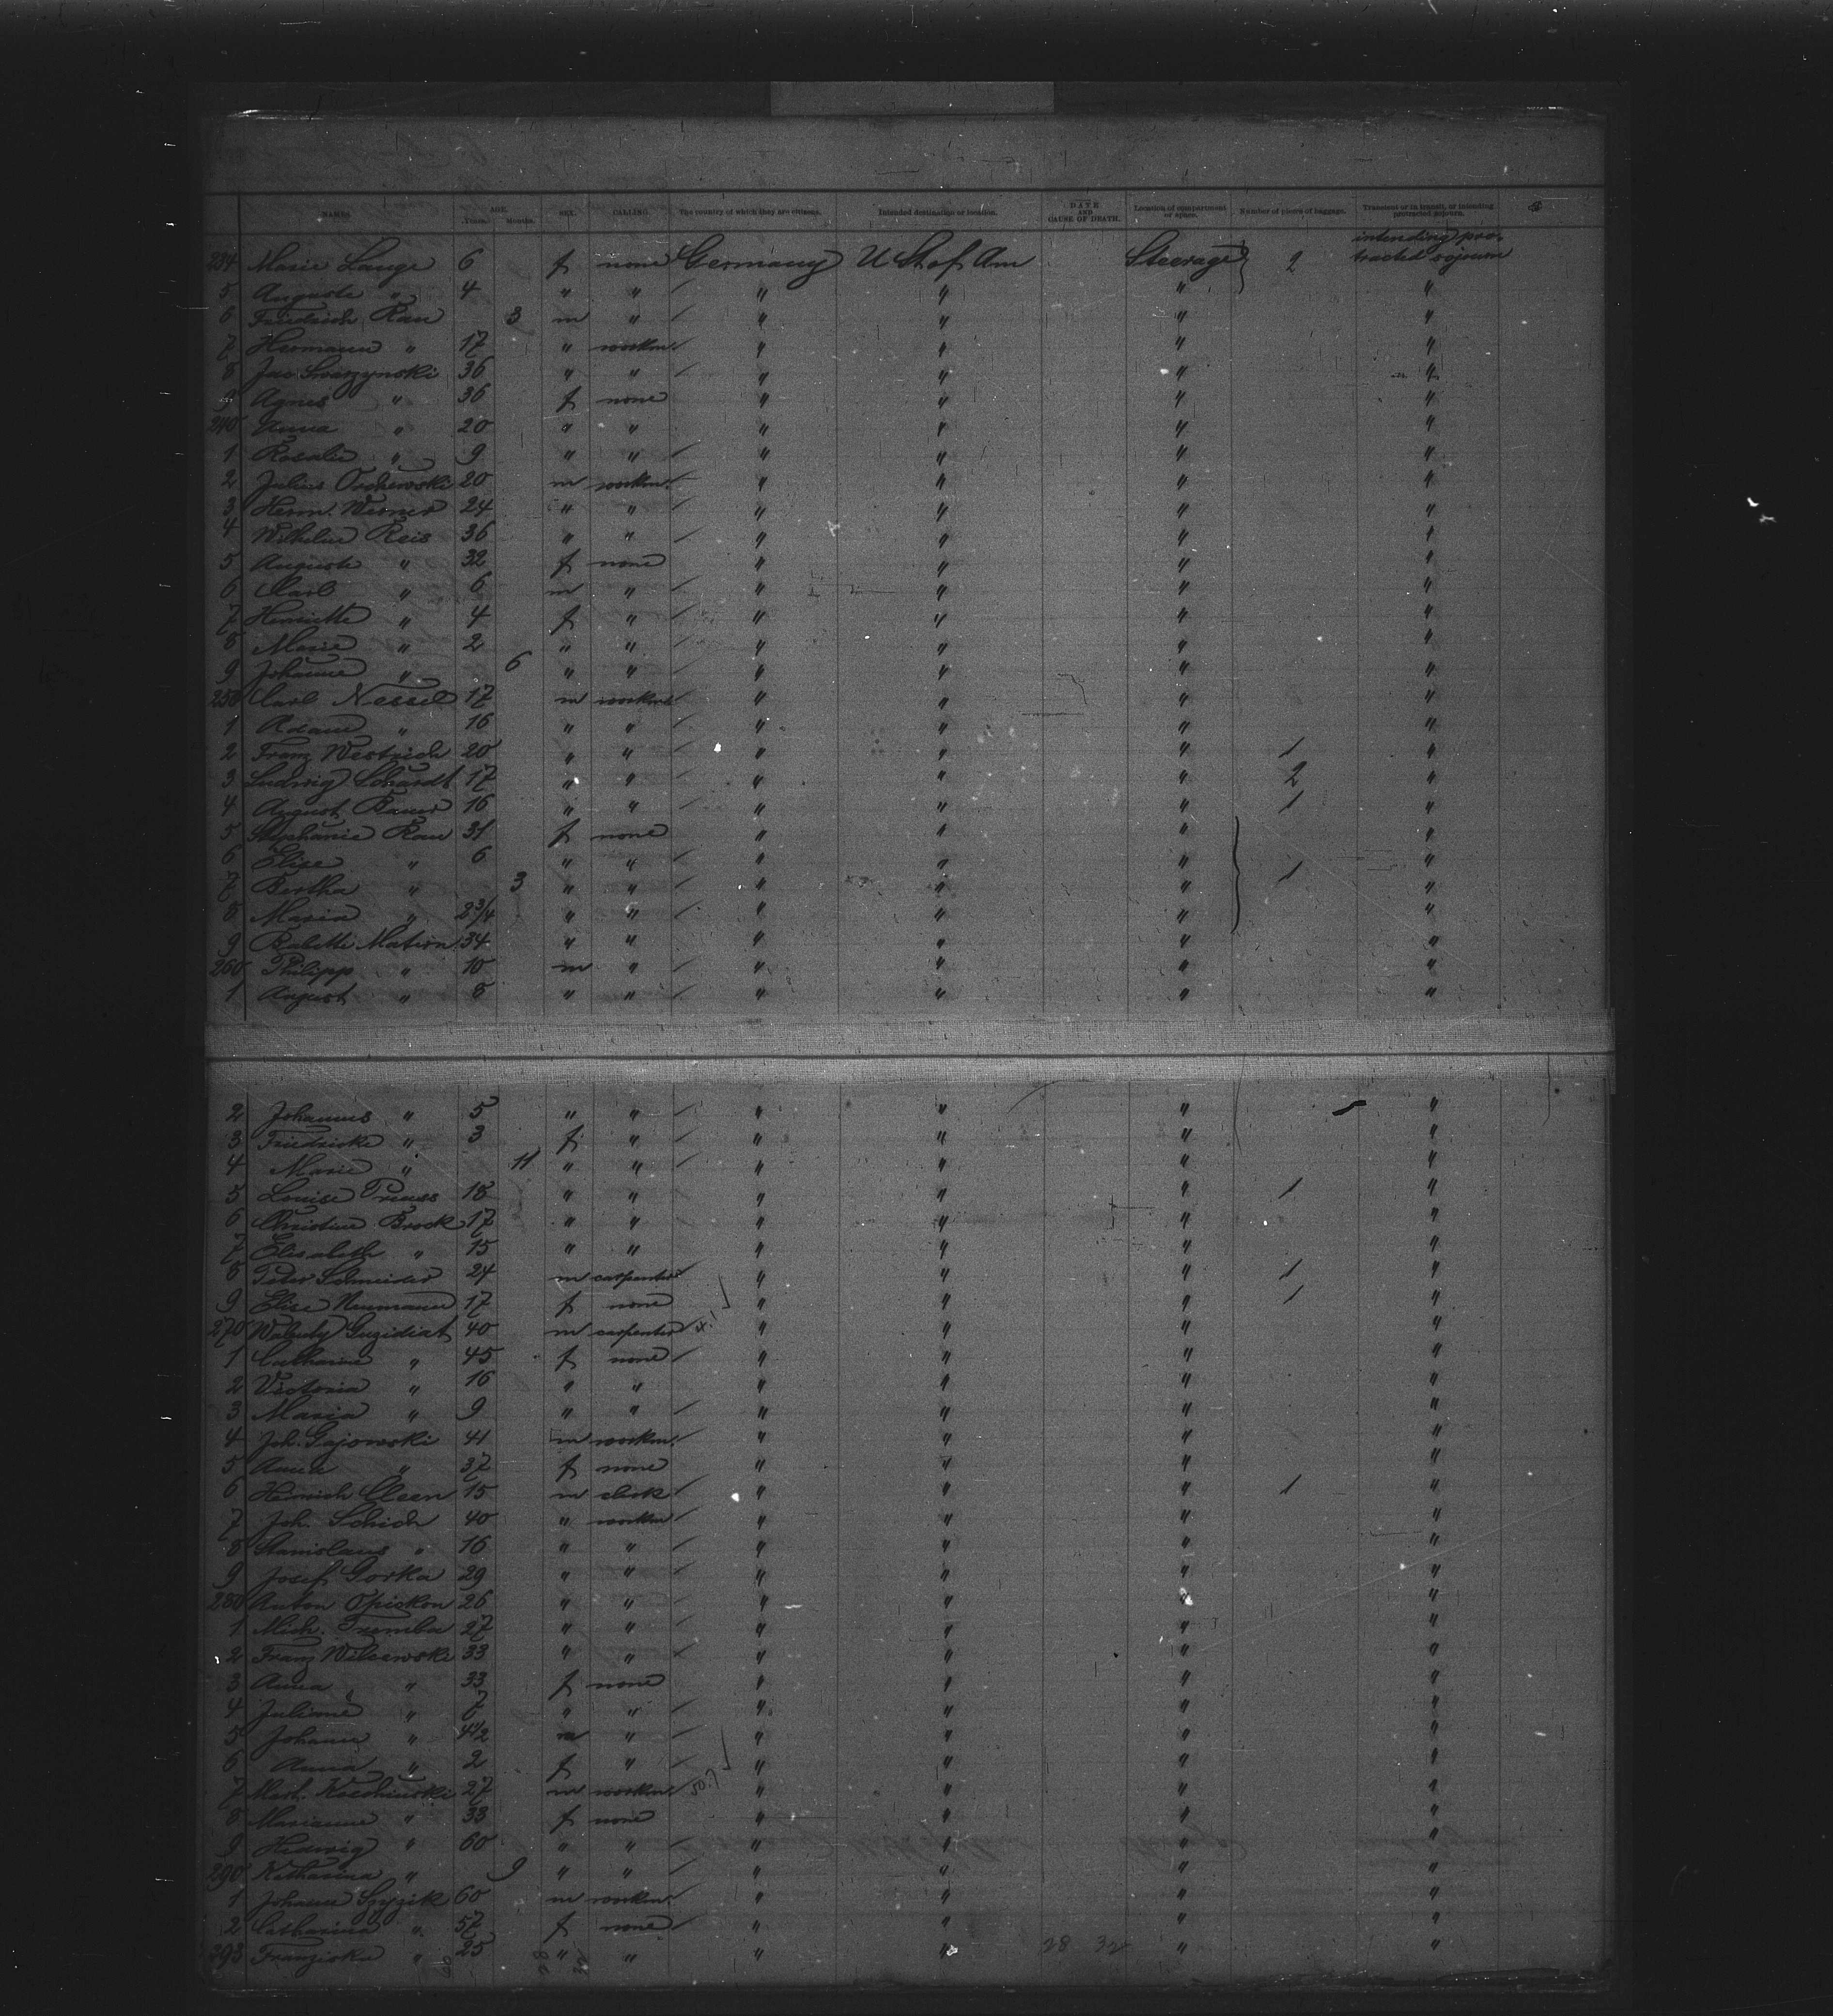 NAMES. AGE. Years. Months. SEX. CALLING. The country of which they are citizens. Intended destination or location. DATE AND CAUSE OF DEATH. Location of compartment or space. Number of pieces of baggage. Transient or in transit, or intending protracted sojourn.
234 Marie Lange 6 f none Germany U St of Am Steerage 2 intending protracted sojourn
5 Auguste " 4 " " " " " "
6 Friedrich Rau 3 m " " " " "
7 Hermann " 17 " workm. " " " "
8 Jac 36 " " " " " "
9 Agnes " 36 f none " " " "
240 Anna " 20 " " " " " "
1 Rosalie " 9 " " " " " "
2 Julius 20 m workm. " " " "
3 Herm. Werner 24 " " " " " "
4 Wilhelm Reis 36 " " " " " "
5 Auguste " 32 f none " " " "
6 Carl " 6 m " " " " "
7 Henriette " 4 f " " " " "
8 Marie " 2 " " " " " "
9 Johanne " 6 " " " " " "
250 Carl Nessel 17 m workm " " " "
1 Adam " 16 " " " " " "
2 Franz Westrich 20 " " " " " 1 "
3 Ludwig Schardt 17 " " " " " 2 "
4 August Bauer 16 " " " " " 1 "
5 Stephanie Rau 31 f none " " " "
6 Elise " 6 " " " " " "
7 Bertha " 3 " " " " " 1 "
8 Maria " 2 3/4 " " " " " "
9 Babette Matern 34 " " " " " "
260 Philipp " 10 m " " " " "
1 August " 8 " " " " " "
2 Johannes " 5 " " " " " "
3 Friedricke " 3 f " " " " "
4 Marie " 11 " " " " " "
5 Louise Preuss 18 " " " " " 1 "
6 Christine Brock 17 " " " " " "
7 Elisabeth " 15 " " " " " "
8 Peter Schneider 24 m carpenter " " " 1 "
9 Elise Neumann 17 f none " " " 1 "
270 40 m carpenter " " " "
1 Catharine " 45 f none " " " "
2 Victoria " 16 " " " " " "
3 Maria " 9 " " " " " "
4 Joh. Gajowski 41 m workm. " " " "
5 Anna " 37 f none " " " "
6 Heinrich Cleen 15 m clerk " " " 1 "
7 Joh. Schich 40 " workm " " " "
8 Stanislaus " 16 " " " " " "
9 Josef Gorka 29 " " " " " "
280 Anton 26 " " " " " "
1 Mich. Tremba 27 " " " " " "
2 Franz 33 " " " " " "
3 Anna " 33 f none " " " "
4 Julianne " 7 " " " " " "
5 Johann " 4 1/2 m " " " " "
6 Anna " 2 f " " " " "
7 27 m workm. " " " "
8 Marianne " 33 f none " " " "
9 Hedwig " 60 " " " " " "
290 Katharina " 9 " " " " " "
1 Johann 60 m workm " " " "
2 Catharina " 57 f none " " " "
293 Franziska " 25 " " " " 28 32 " "